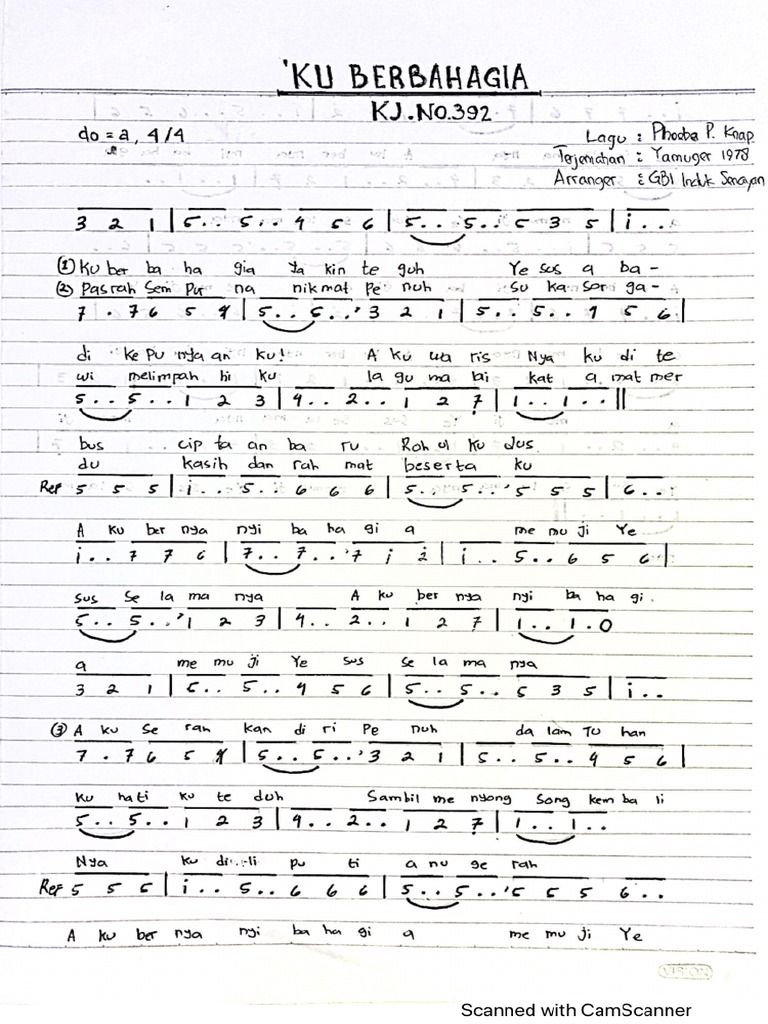 'KU BERBAHAGIA
KJ.NO.392
do = a, 4/4
Lagu : Phoebe P. Knap
Terjemahan : Yamuger 1978
Arranger : GBI Induk Senayan
3 2 1 | 5 . . 5 . . 4 5 6 | 5 . . 5 . . 5 3 5 | i . .
① Ku ber ba ha gia Ya kin te guh Ye sus a ba -
② Pasrah Sem pur na nikmat Pe nuh Su ka sor ga -
7 . 7 6 5 4 | 5 . . 5 . . ' 3 2 1 | 5 . . 5 . . 4 5 6 |
di ke pu nya an ku! A ku wa ris Nya ku di te
wi melimpah hi ku la gu ma lai kat a mat mer
5 . . 5 . . 1 2 3 | 4 . . 2 . . 1 2 7 | 1 . . 1 . . ||
bus cip ta an ba ru Roh ul ku dus
du kasih dan rah mat beserta ku
Ref 5 5 5 | i . . 5 . . 6 6 6 | 5 . . 5 . . ' 5 5 5 | 6 . .
A ku ber nya nyi ba ha gi a me mu ji Ye
i . . 7 7 6 | 7 . . 7 . . ' 7 i 2 | i . . 5 . . 6 5 6 |
sus Se la ma nya A ku ber nya nyi ba ha gi .
5 . . 5 . . ' 1 2 3 | 4 . . 2 . . 1 2 7 | 1 . . 1 . 0
a me mu ji Ye sus Se la ma nya
3 2 1 | 5 . . 5 . . 4 5 6 | 5 . . 5 . . 5 3 5 | i . .
③ A ku Se rah kan di ri Pe nuh da lam Tu han
7 . 7 6 5 4 | 5 . . 5 . . ' 3 2 1 | 5 . . 5 . . 4 5 6 |
Ku hati ku te duh Sambil me nyong Song kem ba li
5 . . 5 . . 1 2 3 | 4 . . 2 . . 1 2 7 | 1 . . 1 . .
Nya ku di li pu ti a nu ge rah
Ref 5 5 5 | i . . 5 . . 6 6 6 | 5 . . 5 . . ' 5 5 5 6 . .
A ku ber nya nyi ba ha gi a me mu ji Ye
VISION
Scanned with CamScanner